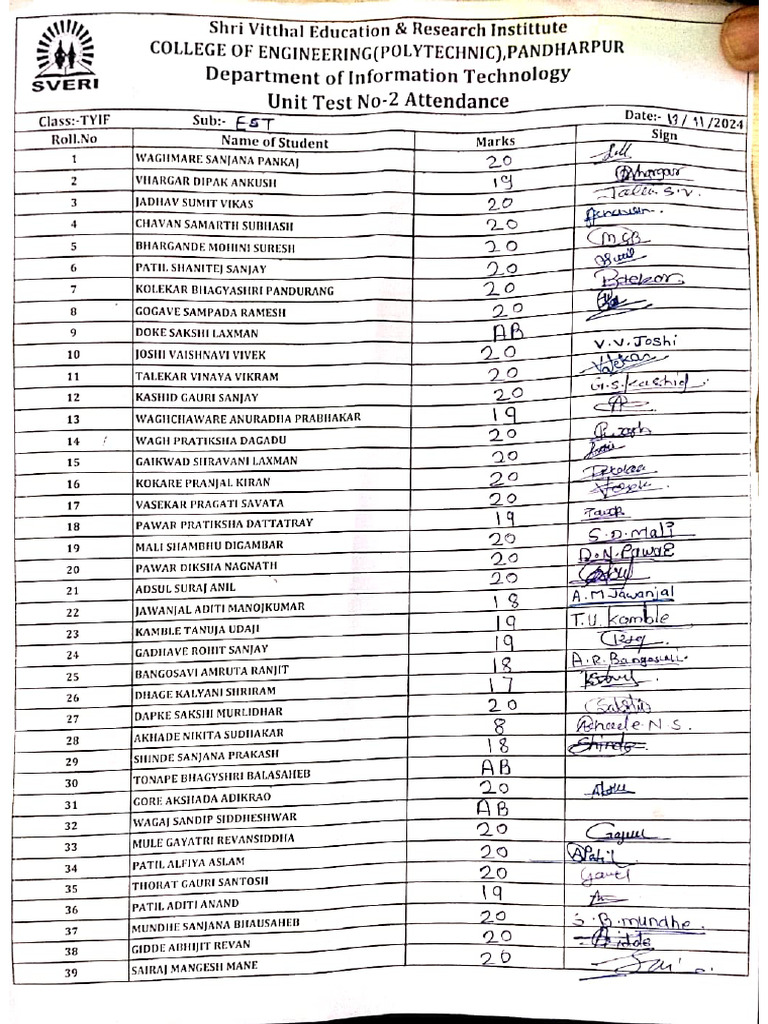 Shri Vitthal Education & Research Instittute
COLLEGE OF ENGINEERING(POLYTECHNIC),PANDHARPUR
SVERI
Department of Information Technology
Unit Test No-2 Attendance
Class:-TYIF Sub:- EST Date:- /11/2024
Roll.No Name of Student Marks Sign
1 WAGHMARE SANJANA PANKAJ 20
2 VHARGAR DIPAK ANKUSH 19
3 JADHAV SUMIT VIKAS 20
4 CHAVAN SAMARTH SUBHASH 20
5 BHARGANDE MOHINI SURESH 20
6 PATIL SHANITEJ SANJAY 20
7 KOLEKAR BHAGYASHRI PANDURANG 20
8 GOGAVE SAMPADA RAMESH 20
9 DOKE SAKSHI LAXMAN AB
10 JOSHI VAISHNAVI VIVEK 20 V.V.Joshi
11 TALEKAR VINAYA VIKRAM 20
12 KASHID GAURI SANJAY 20 G.S.Kashid
13 WAGHCHAWARE ANURADHA PRABHAKAR 19
14 WAGH PRATIKSHA DAGADU 20
15 GAIKWAD SHRAVANI LAXMAN 20
16 KOKARE PRANJAL KIRAN 20
17 VASEKAR PRAGATI SAVATA 20
18 PAWAR PRATIKSHA DATTATRAY 19
19 MALI SHAMBHU DIGAMBAR 20 S.D.Mali
20 PAWAR DIKSHA NAGNATH 20 D.N.Pawar
21 ADSUL SURAJ ANIL 20
22 JAWANJAL ADITI MANOJKUMAR 18 A.M Jawanjal
23 KAMBLE TANUJA UDAJI 19 T.U.Kamble
24 GADHAVE ROHIT SANJAY 19
25 BANGOSAVI AMRUTA RANJIT 18 A.R.Bangosavi
26 DHAGE KALYANI SHRIRAM 17
27 DAPKE SAKSHI MURLIDHAR 20 Sakshi
28 AKHADE NIKITA SUDHAKAR 8 Akhade N.S.
29 SHINDE SANJANA PRAKASH 18 Shinde
30 TONAPE BHAGYSHRI BALASAHEB AB
31 GORE AKSHADA ADIKRAO 20
32 WAGAJ SANDIP SIDDHESHWAR AB
33 MULE GAYATRI REVANSIDDHA 20
34 PATIL ALFIYA ASLAM 20 APatil
35 THORAT GAURI SANTOSH 20
36 PATIL ADITI ANAND 19
37 MUNDHE SANJANA BHAUSAHEB 20 S.B.mundhe.
38 GIDDE ABHIJIT REVAN 20
39 SAIRAJ MANGESH MANE 20 Sai